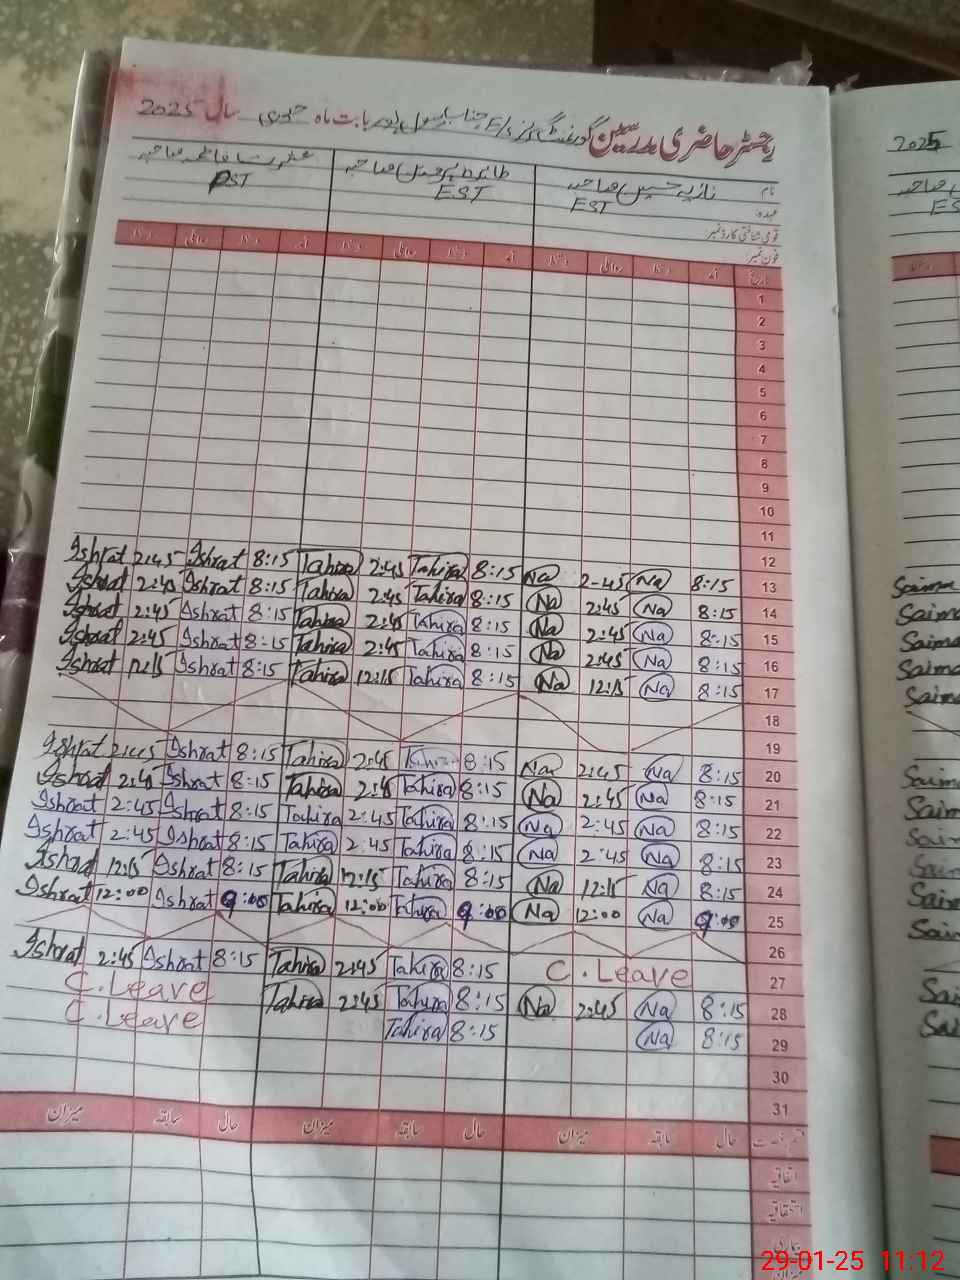 رجسٹر حاضری مدرسین گورنمنٹ بابت ماہ جنوری سال 2025
2025
نام نازیہ حسین صاحبہ طاہرہ صاحبہ عشرت فاطمہ صاحبہ
عہدہ EST EST PST
ES
قومی شناختی کارڈ نمبر
فون نمبر
تاریخ آمد دستخط روانگی دستخط آمد دستخط روانگی دستخط آمد دستخط روانگی دستخط
1
2
3
4
5
6
7
8
9
10
11
12
13 8:15 Na 2-45 Na 8:15 Tahira 2:45 Tahira 8:15 Ishrat 2:45 Ishrat
14 8:15 Na 2:45 Na 8:15 Tahira 2:45 Tahira 8:15 Ishrat 2:45 Ishrat
15 8:15 Na 2:45 Na 8:15 Tahira 2:45 Tahira 8:15 Ishrat 2:45 Ishrat
16 8:15 Na 2:45 Na 8:15 Tahira 2:45 Tahira 8:15 Ishrat 2:45 Ishrat
17 8:15 Na 12:15 Na 8:15 Tahira 12:15 Tahira 8:15 Ishrat 12:15 Ishrat
18
19
20 8:15 Na 2:45 Na 8:15 Tahira 2:45 Tahira 8:15 Ishrat 2:45 Ishrat
21 8:15 Na 2:45 Na 8:15 Tahira 2:45 Tahira 8:15 Ishrat 2:45 Ishrat
22 8:15 Na 2:45 Na 8:15 Tahira 2:45 Tahira 8:15 Ishrat 2:45 Ishrat
23 8:15 Na 2:45 Na 8:15 Tahira 2:45 Tahira 8:15 Ishrat 2:45 Ishrat
24 8:15 Na 12:15 Na 8:15 Tahira 12:15 Tahira 8:15 Ishrat 12:15 Ishrat
25 9:00 Na 12:00 Na 9:00 Tahira 12:00 Tahira 9:00 Ishrat 12:00 Ishrat
26
27 C.Leave 8:15 Tahira 2:45 Tahira 8:15 Ishrat 2:45 Ishrat
28 8:15 Na 2:45 Na 8:15 Tahira 2:45 Tahira C.Leave
29 8:15 Na 8:15 Tahira C.Leave
30
31
حال سابقہ میزان حال سابقہ میزان حال سابقہ میزان
اتفاقیہ
استحقاقیہ
بیماری
میزان
29-01-25 11:12